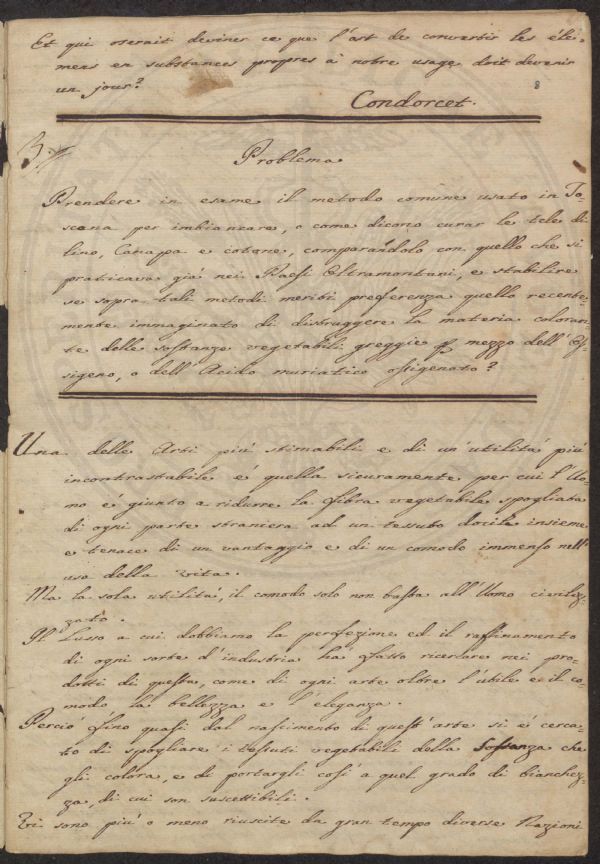 Et qui oserait deviner ce que l'art de convertir les élé-
mens en substances propres à notre usage doit devenir
un jour?
8
Condorcet.
3.
Problema
Prendere in esame il metodo comune usato in To-
scana per imbiancare, o come dicono curar le tele di
lino, Canapa e cotone, comparándolo con quello che si
praticava giá nei Paesi Oltramontani, e stabilire
se sopra tali metodi meriti preferenza quello recente-
mente immaginato di distruggere la materia coloran-
te delle sostanze vegetabili greggie p mezzo dell' Os-
sigeno, o dell' Acido muriatico ossigenato?
Una delle Arti piú stimabili e di un' utilitá piú
incontrastabile é quella sicuramente per cui l'Uo-
mo é giunto a ridurre la fibra vegetabile spogliata
di ogni parte straniera ad un tessuto docile insieme
e tenace di un vantaggio e di un comodo immenso nell'
uso della vita.
Ma la sola utilitá, il comodo solo non basta all' Uomo civiliz-
zato.
Il Lusso a cui dobbiamo la perfezione ed il raffinamento
di ogni sorte d' industria ha fatto ricercare nei pro-
dotti di questa, come di ogni arte oltre l'utile e il co-
modo la bellezza e l' eleganza.
Perció fino quasi dal nascimento di quest' arte si é cerca-
to di spogliare i tessuti vegetabili della Sostanza che
gli colóra, e di portargli cosí a quel grado di bianchez-
za, di cui son suscettibili.
Vi sono piú o meno riuscite da gran tempo diverse Nazioni